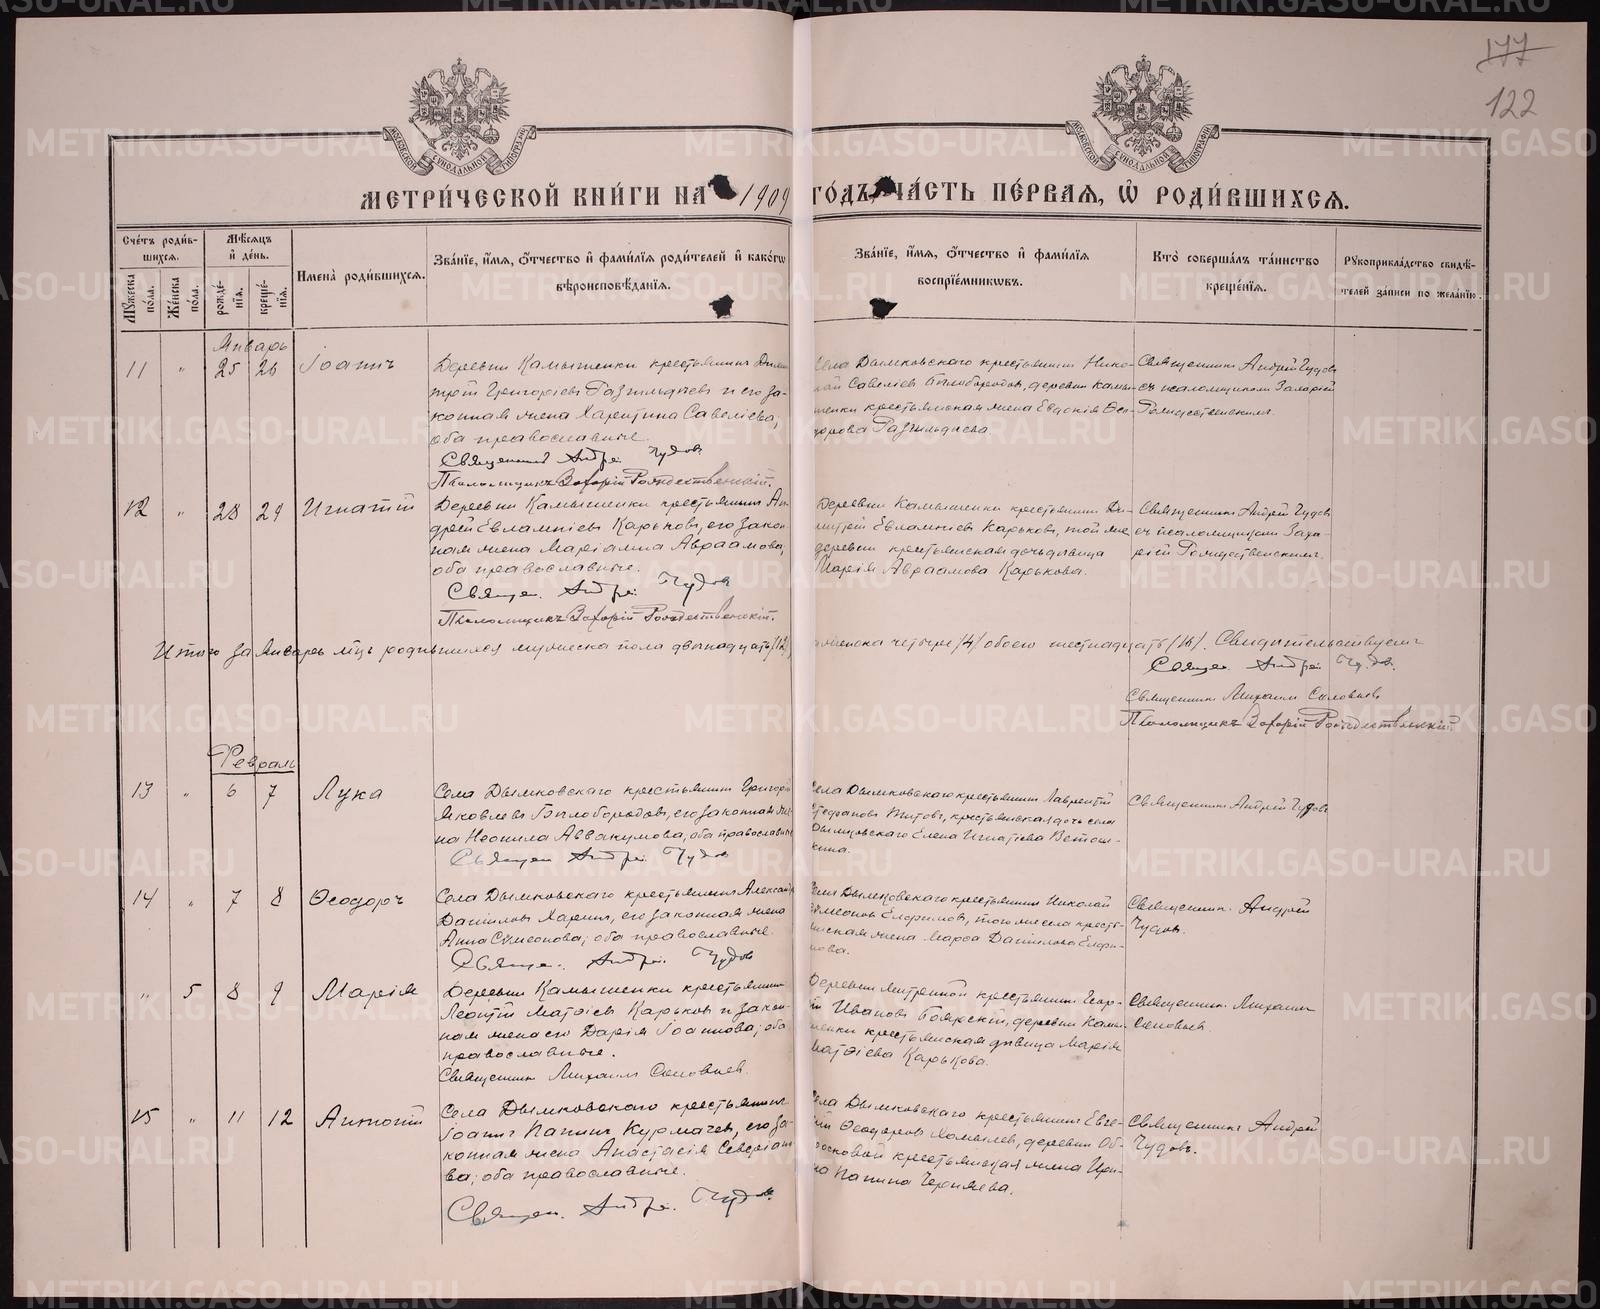 177
122
МОСКОВСКОЙ СѴНОДАЛЬНОЙ ТИПОГРАФІИ
МОСКОВСКОЙ СѴНОДАЛЬНОЙ ТИПОГРАФІИ
МЕТРИ́ЧЕСКОЙ КНИ́ГИ НА 1909 ГО́ДЪ, ЧА́СТЬ ПЕ́РВАЯ, Ѡ РОДИ́ВШИХСЯ.
Сче́тъ роди́вшихся.
Мꙋжеска по́ла.
Же́нска по́ла.
Мѣ́сяцъ и҆ де́нь.
рожде́нїя.
креще́нїя.
И҆мена̀ роди́вшихся.
Зва́нїе, и҆́мя, ѻ҆́тчество и҆ фами́лїя роди́телей и҆ како́гѡ
вѣроисповѣ́данїя.
Зва́нїе, и҆́мя, ѻ҆́тчество и҆ фами́лїя
воспрїе́мникѡвъ.
Кто̀ соверша́лъ та́инство
креще́нїя.
Рꙋкоприкла́дство свидѣ́-
телей за́писи по жела́нїю.
Январь
11 " 25 26 Іоаннъ
Деревни Камышенки крестьянинъ Дими-
трій Григоріевъ и его за-
конная жена Харитина Савеліева,
оба православные.
Священникъ Андрей Чудов
Псаломщикъ Захарій Рождественскій.
Села Дымковскаго крестьянинъ Нико-
лай Савеліевъ Бѣлобородовъ, деревни Камы-
шенки крестьянская жена Евдокія Ѳео-
дорова
Священникъ Андрей Чудовъ
съ псаломщикомъ Захаріем
Рождественскимъ.
12 " 28 29 Игнатій
Деревни Камышенки крестьянинъ Ан-
дрей Евлампіевъ Карьковъ, его закон-
ная жена Маріамна Авраамова,
оба православные.
Священ. Андрей Чудов
Псаломщикъ Захарій Рождественскій.
Деревни Камышенки крестьянинъ Ди-
митрій Евлампіевъ Карьковъ, той же
деревни крестьянская дочь дѣвица
Марія Авраамова Карькова.
Священникъ Андрей Чудовъ
съ псаломщикомъ Заха-
ріемъ Рождественскимъ.
Итого за Январь мѣсцъ родившихся мужеска пола двѣнадцать /12/, женска четыре /4/ обоего шестнадцать /16/. Свидѣтельствуемъ
Священ. Андрей Чудов.
Священникъ Михаилъ Соловьев
Псаломщикъ Захарій Рождественскій.
Февраль
13 " 6 7 Лука
Села Дымковскаго крестьянинъ Григорій
Яковлевъ Бѣлобородовъ, его законная же-
на Неонила Аввакумова, оба православные
Священ Андрей Чудов
Села Дымковскаго крестьянинъ Лаврентій
Стефановъ Титовъ, крестьянская дочь села
Дымковскаго Елена Игнатіева Ветош-
кина.
Священникъ Андрей Чудовъ
14 " 7 8 Ѳеодоръ
Села Дымковскаго крестьянинъ Александръ
Даніиловъ Харинъ, его законная жена
Анна Сѵмеонова, оба православные.
Священ. Андрей Чудов
Села Дымковскаго крестьянинъ Николай
Сѵмеоновъ Елфимовъ, того же села кресть-
янская жена Марѳа Даніилова Елфи-
мова.
Священникъ Андрей
Чудовъ.
" 5 8 9 Марія
Деревни Камышенки крестьянинъ
Леонтій Матѳіевъ Карьковъ и закон-
ная жена его Дарія Іоаннова, оба
православные.
Священникъ Михаилъ Соловьев.
Деревни крестьянинъ Геор-
гій Ивановъ Боярскій, деревни Камы-
шенки крестьянская дѣвица Марія
Матѳіева Карькова.
Священникъ Михаилъ
Соловьевъ.
15 " 11 12 Антоній
Села Дымковскаго крестьянинъ
Іоаннъ Папинъ Курмачевъ, его за-
конная жена Анастасія Северіано-
ва, оба православные.
Священ. Андрей Чудов
Села Дымковскаго крестьянинъ Евге-
ній Ѳеодоровъ Хомяковъ, деревни Об-
росковой крестьянская жена Ири-
на Папина Черняева.
Священникъ Андрей
Чудовъ.
METRIKI.GASO-URAL.RU